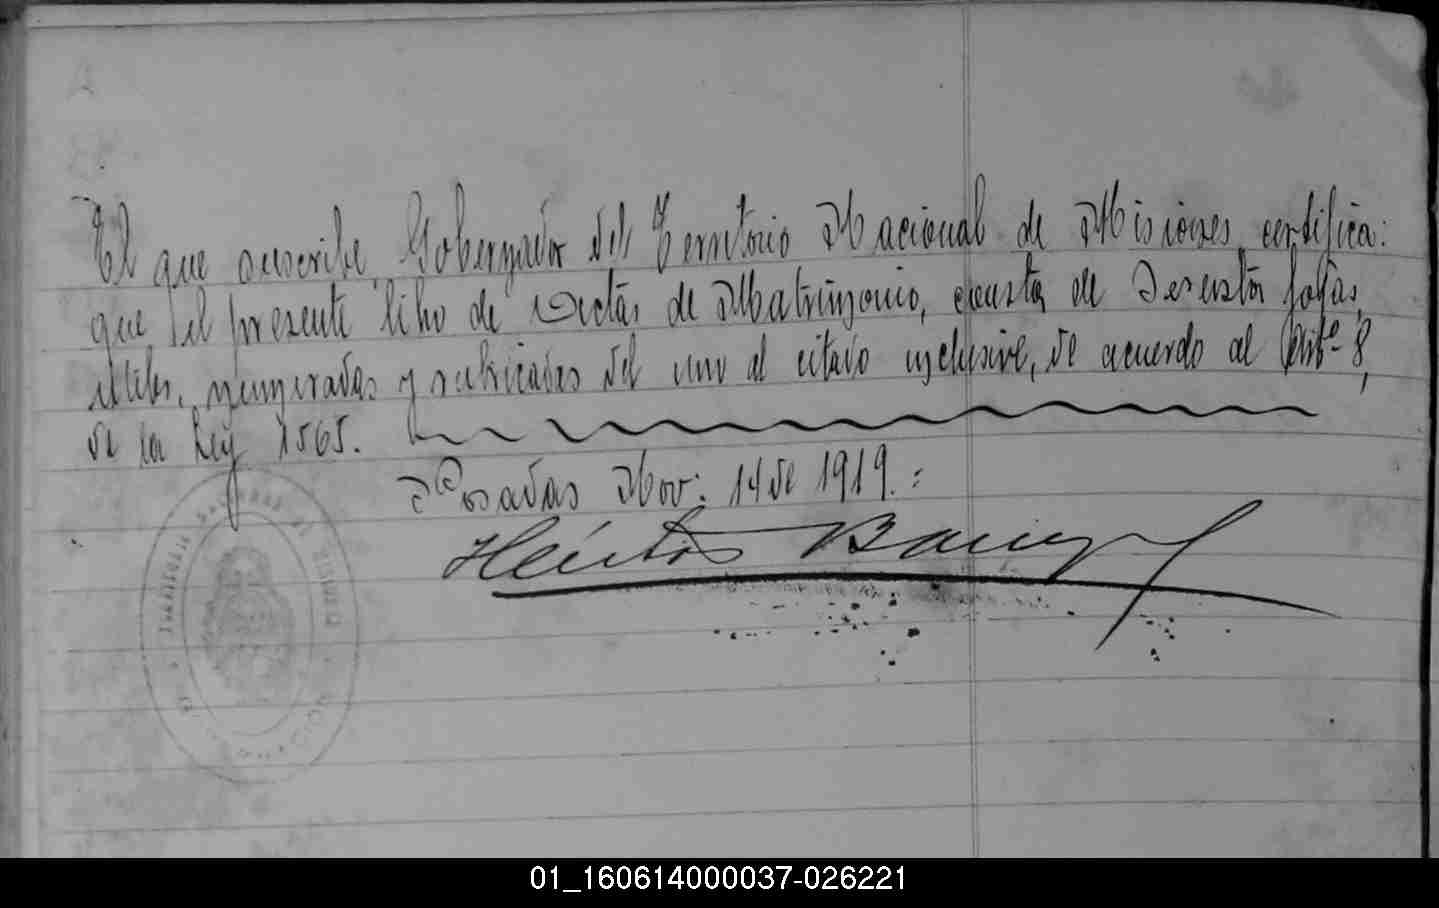 El que suscribe, Gobernador del Territorio Nacional de Misiones, certifica:
que el presente libro de Actas de Matrimonio, consta de Sesenta fojas,
utiles, numeradas y rubricadas del uno al citado inclusive, de acuerdo al Artº 8,
de la Ley 1565.
Posadas Nov. 14 de 1919.:
Héctor Barreyro
01_160614000037-026221